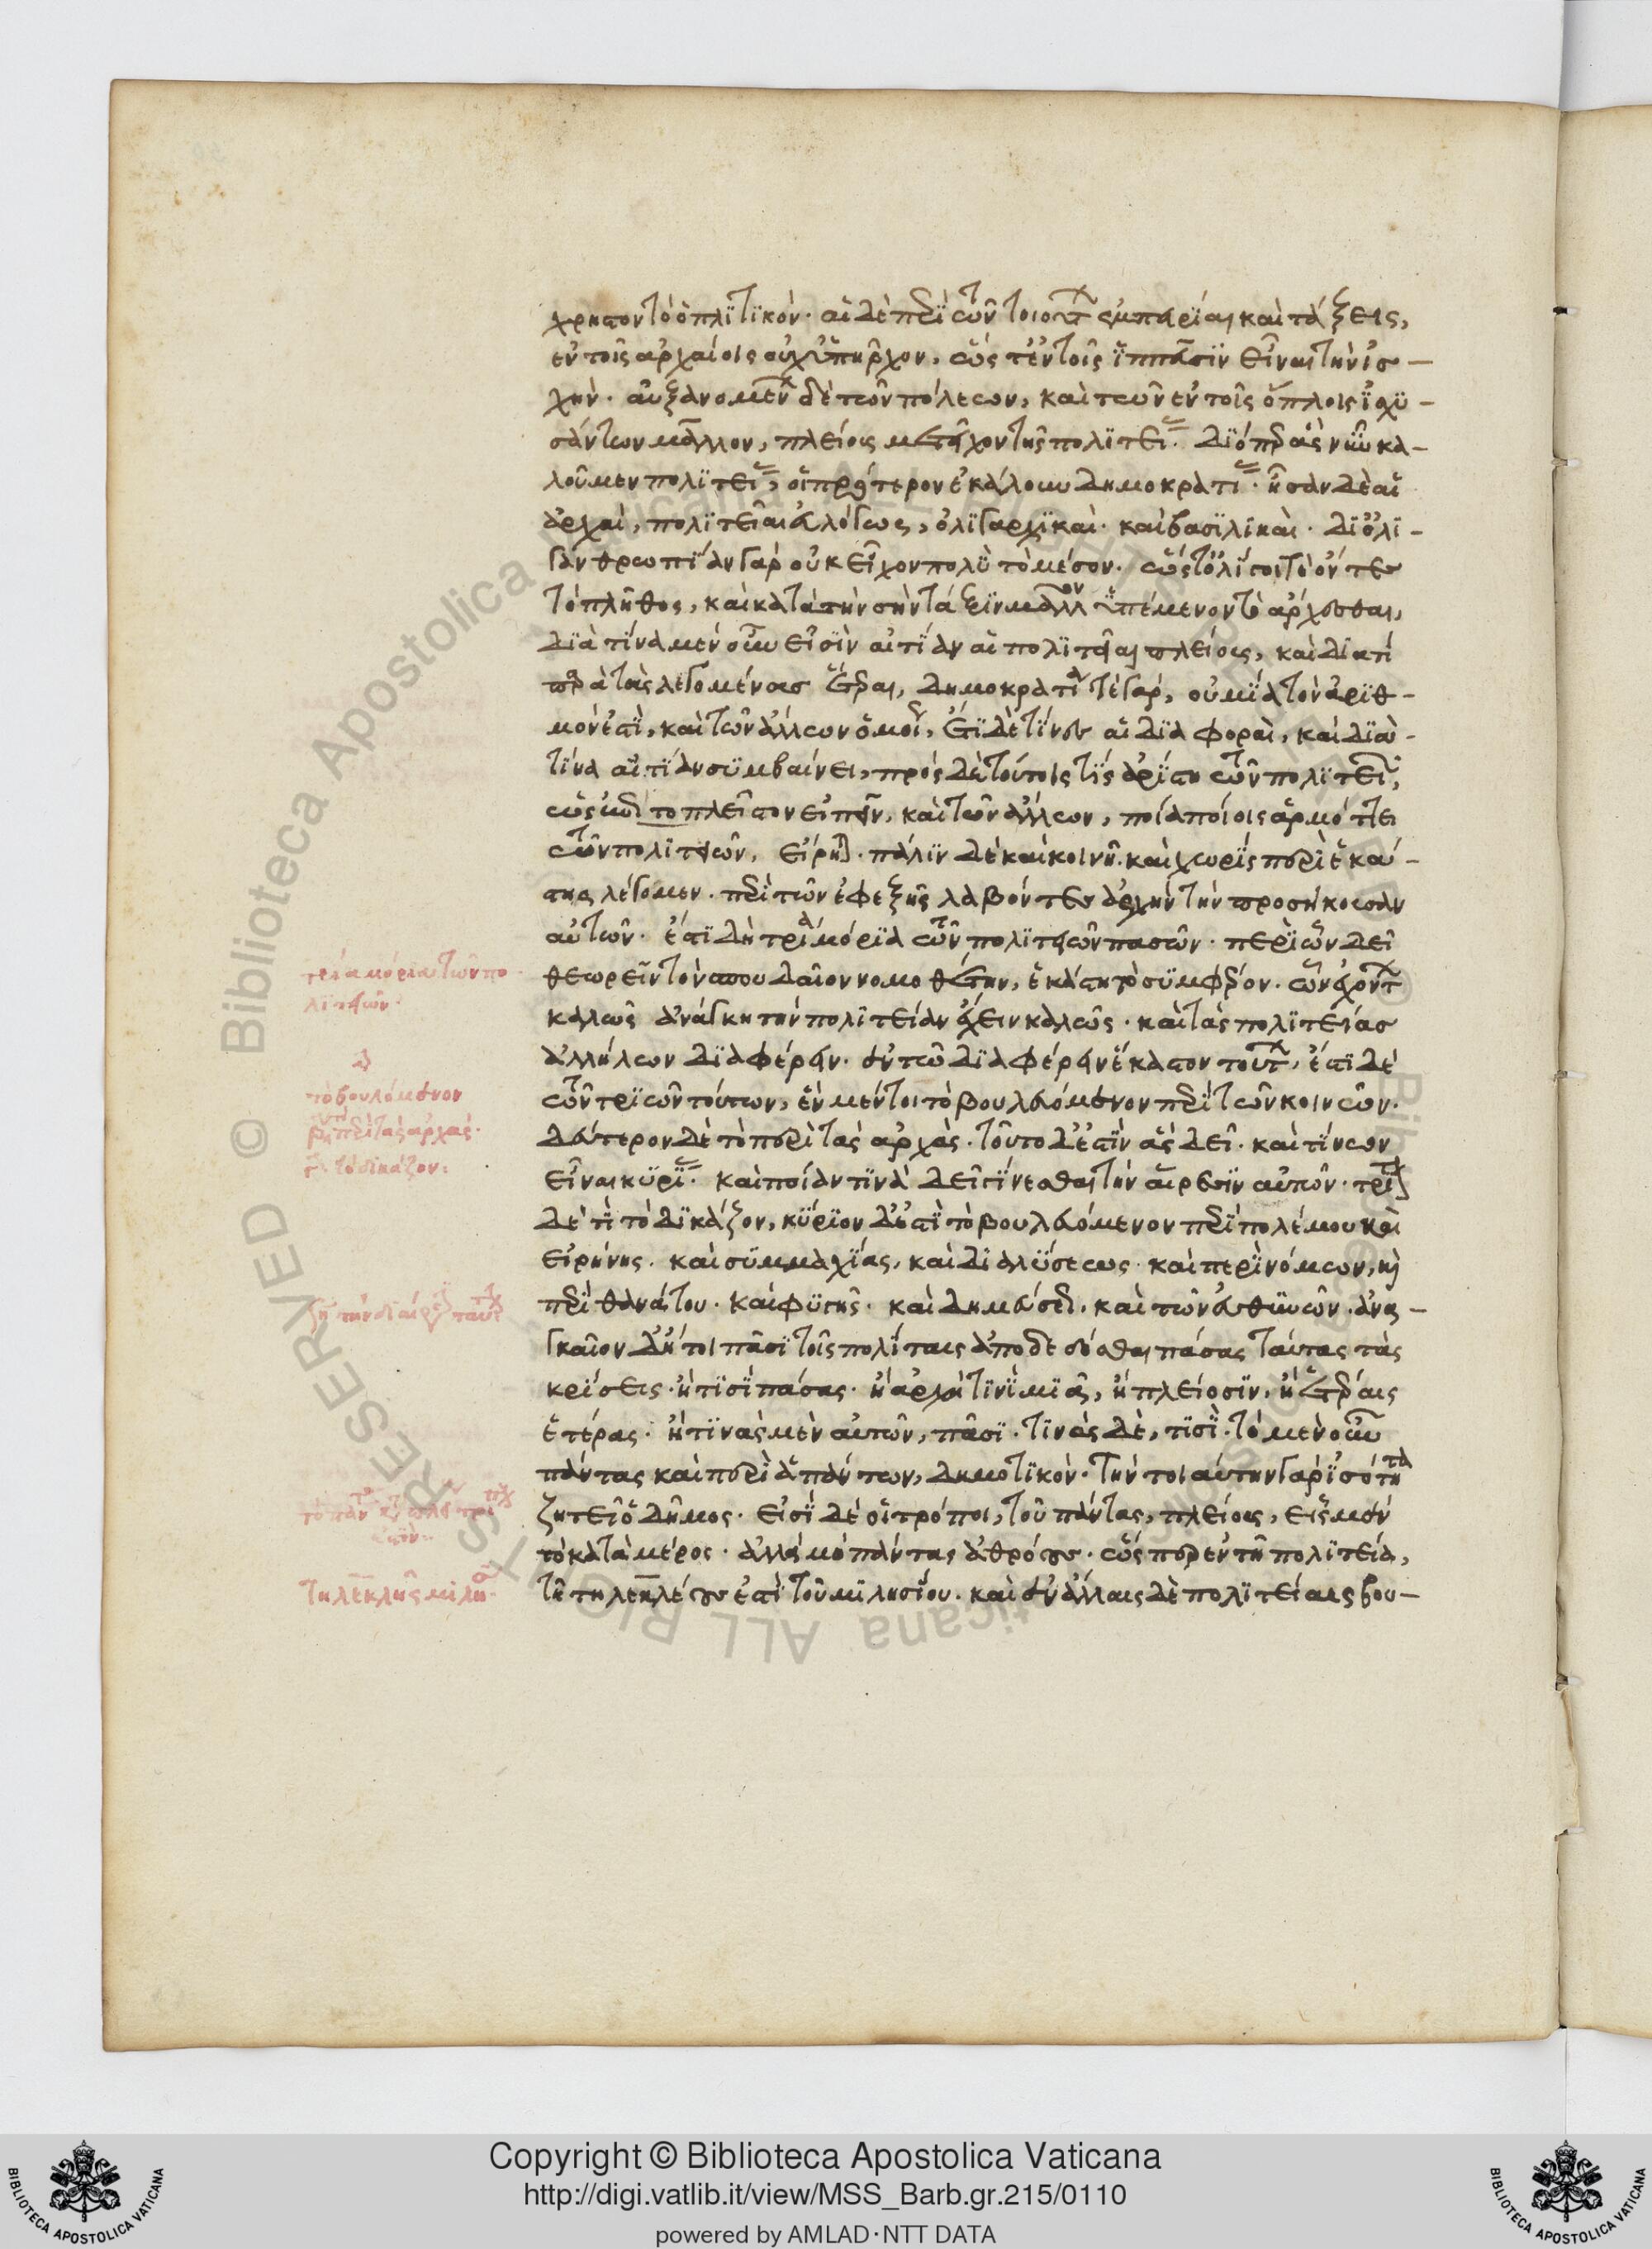 χρηστον τὸ ὁπλϊτϊκὸν· αἱ δὲ περὶ τῶν τοιούτων ἐμπειρίαι καὶ τάξεις,
ἐν τοῖς ἀρχαίοις οὐχ ὑπῆρχον, ὥστ' ἐν τοῖς ἱππεῦσϊν εἶναι τὴν ἰσ-
χὴν· αὐξανομένων δὲ τῶν πόλεων, καὶ τῶν ἐν τοῖς ὅπλοις ἰσχϋ-
σάντων μᾶλλον, πλείους μετεῖχον τῆς πολϊτείας· διόπερ ἃς νῦν κα-
λοῦμεν πολϊτείας, οἱ πρότερον ἐκάλουν δημοκρατίας· ἦσαν δὲ αἱ
ἀρχαὶ, πολϊτεῖαι εὐλόγως, ὀλϊγαρχϊκαὶ· καὶ βασϊλϊκαὶ· δι' ὀλϊ-
γανθρωπϊαν γὰρ οὐκ εἶχον πολὺ τὸ μέσον· ὥστ' ὀλίγοι τὲ ὄντες
τὸ πλῆθος, καὶ κατὰ τὴν σὴν τάξϊν μᾶλλον ὑπέμενον τὸ ἄρχεσθαι,
διὰ τίνα μὲν οὖν εἰσὶν αἰτίαν αἱ πολιτεῖαι πλείους, καὶ διατί
παρὰ τὰς λεγομένας ἕτεραι, δημοκρατία τὲ γὰρ, οὐ μία τὸν ἀριθ-
μὸν ἐστὶ, καὶ τῶν ἄλλων ὁμοίως, ἔτι δὲ τίνες αἱ διαφοραὶ, καὶ διὰ
τίνα αἰτίαν συμβαίνει, πρὸς δὲ τούτοις τίς ἀρίστη τῶν πολιτειῶν,
ὡς ἐπὶ τὸ πλεῖστον εἰπεῖν, καὶ τῶν ἄλλων, ποία ποίοις ἁρμόττει
τῶν πολιτειῶν, εἴρηται· πάλιν δὲ καὶ κοινῇ· καὶ χωρὶς περὶ ἑκάσ-
της λέγομεν· περὶ τῶν ἐφεξῆς λαβόντες ἀρχὴν τὴν προσήκουσαν
αὐτῶν· ἔστι δὴ τρία μόρια τῶν πολιτειῶν πασῶν· περὶ ὧν δεῖ
θεωρεῖν τὸν σπουδαῖον νομοθέτην, ἑκάστη τὸ συμφέρον· ὧν ἐχόντων
καλῶς ἀνάγκη τὴν πολιτείαν ἔχειν καλῶς· καὶ τὰς πολιτείας
ἀλλήλων διαφέρειν· ἐν τῷ διαφέρειν ἕκαστον τούτων, ἔστι δὲ
τῶν τριῶν τούτων, ἓν μέν τοι τὸ βουλευόμενον περὶ τῶν κοινῶν·
δεύτερον δὲ τὸ περὶ τὰς ἀρχὰς· τοῦτο δ' ἐστὶν ἃς δεῖ· καὶ τίνων
εἶναι κυρίας· καὶ ποίαν τινὰ δεῖ γίνεσθαι τὴν αἵρεσιν αὐτῶν· τρίτον
δέ τι τὸ δικάζον, κύριον δ' ἐστὶ τὸ βουλευόμενον περὶ πολέμου καὶ
εἰρήνης· καὶ συμμαχίας, καὶ διαλύσεως· καὶ περὶ νόμων, καὶ
περὶ θανάτου· καὶ φυγῆς· καὶ δημεύσεως· καὶ τῶν εὐθυνῶν· ἀνα-
γκαῖον δ' ἤτοι πᾶσι τοῖς πολίταις ἀποδεδόσθαι πάσας ταύτας τὰς
κρίσεις· ἢ τισὶ πάσας· ἢ ἀρχῇ τινὶ μιᾷ, ἢ πλείοσιν, ἢ ἑτέραις
ἑτέρας· ἢ τινὰς μὲν αὐτῶν, πᾶσι· τινὰς δὲ, τισὶ· τὸ μὲν οὖν
πάντας καὶ περὶ ἁπάντων, δημοτικὸν· τὴν τοιαύτην γὰρ ἰσότητα
ζητεῖ ὁ δῆμος· εἰσὶ δὲ οἱ τρόποι, τοῦ πάντας, πλείους, εἷς μὲν
τὸ κατὰ μέρος· ἀλλὰ μὸ πάντας ἀθρόους· ὥσπερ ἐν τῇ πολιτείᾳ,
τῇ τηλεκλέους ἐστὶ τοῦ μιλησίου· καὶ ἐν ἄλλαις δὲ πολιτείαις βου-
τρία μόρια τῶν πο-
λιτειῶν·
α
τὸ βουλευόμενον
β τὸ περὶ τὰς ἀρχάς·
γ τὸ δικάζον:
τηλεκλῆς μιλή·
Copyright © Biblioteca Apostolica Vaticana
http://digi.vatlib.it/view/MSS_Barb.gr.215/0110
powered by AMLAD·NTT DATA
BIBLIOTECA APOSTOLICA VATICANA
BIBLIOTECA APOSTOLICA VATICANA